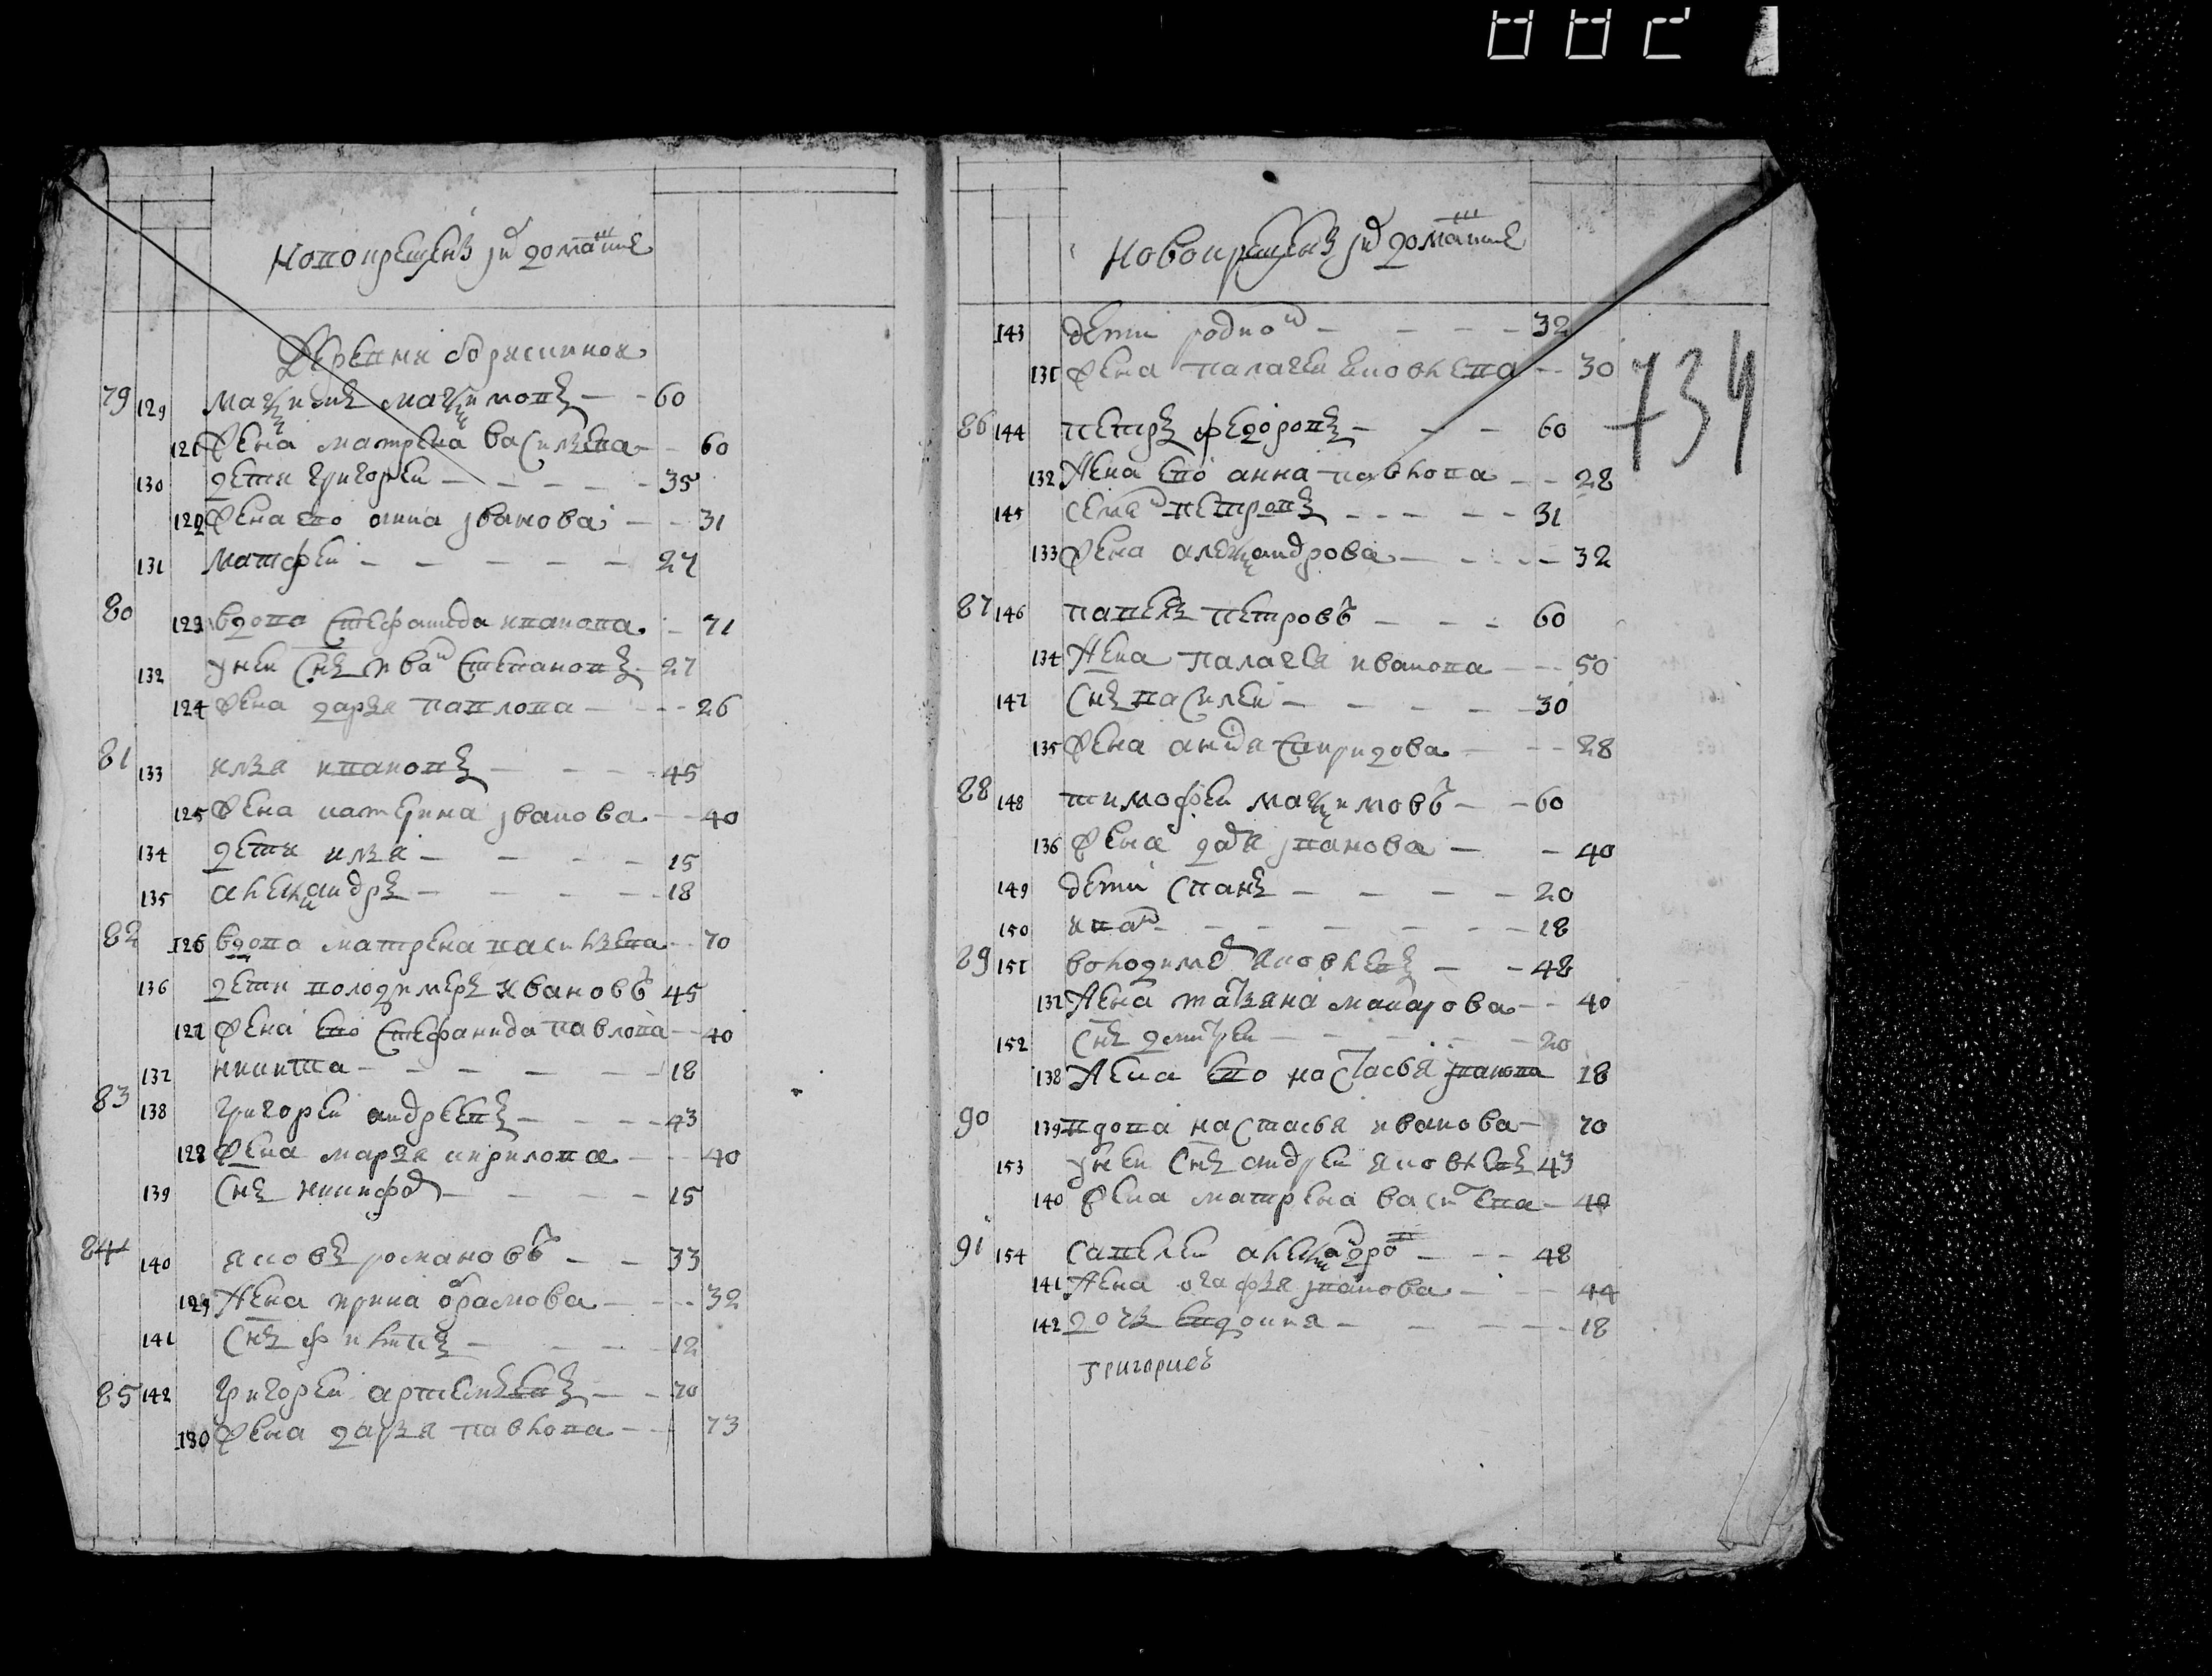 Новокрещенъ и домашние
Деревня
79 129 Максимъ Максимовъ 60
121 Жена Матрена Васильева 60
130 дети Григорей 35
122 Жена ево Анна Иванова 31
131 Матфей 24
80 123 вдова Стефанида Иванова 71
132 у неи снъ Иван Степановъ 27
124 Жена дарья павлова 26
81 133 илья ивановъ 45
125 Жена катерина Иванова 40
134 дети илья 15
135 александръ 18
82 126 вдова матрена васильева 70
136 дети володимеръ Ивановъ 45
127 Жена ево Стефанида павлова 40
137 никита 18
83 138 григорей андреевъ 43
128 Жена марья кирилова 40
139 снъ никифор 15
84 140 яковъ романовъ 33
129 Жена ирина абрамова 32
141 снъ филипъ 12
85 142 григорей артемьевъ 70
130 Жена дарья павлова 73
Новокрещенъ и домашние
734
143 дети родион 32
131 Жена палагея яковлева 30
86 144 петръ федоровъ 60
132 Жена ево анна павлова 28
145 семен петровъ 31
133 Жена александрова 32
87 146 павелъ петровъ 60
134 Жена палагея иванова 50
147 снъ василей 30
135 Жена спиридова 28
88 148 тимофей максимовъ 60
136 Жена иванова 40
149 дети 20
150 иван 18
89 151 володимер яковлевъ 48
137 Жена татьяна макарова 40
152 снъ дмитрей 20
138 Жена ево настасья иванова 18
90 139 вдова настасья иванова 70
153 у неи снъ андрей яковлевъ 43
140 Жена матрена василева 40
91 154 савелей александров 48
141 Жена агафья иванова 44
142 дочь евдокия 18
Григориев